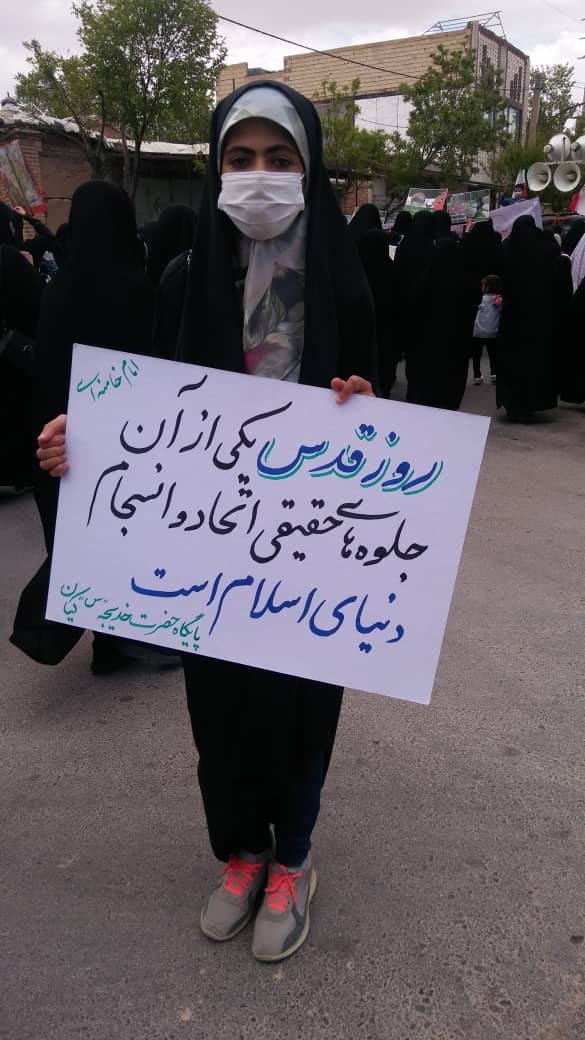 امام خامنه ای
روز قدس یکی از آن
جلوه های حقیقی اتحاد و انسجام
دنیای اسلام است
پایگاه حضرت خدیجه "س" کیان